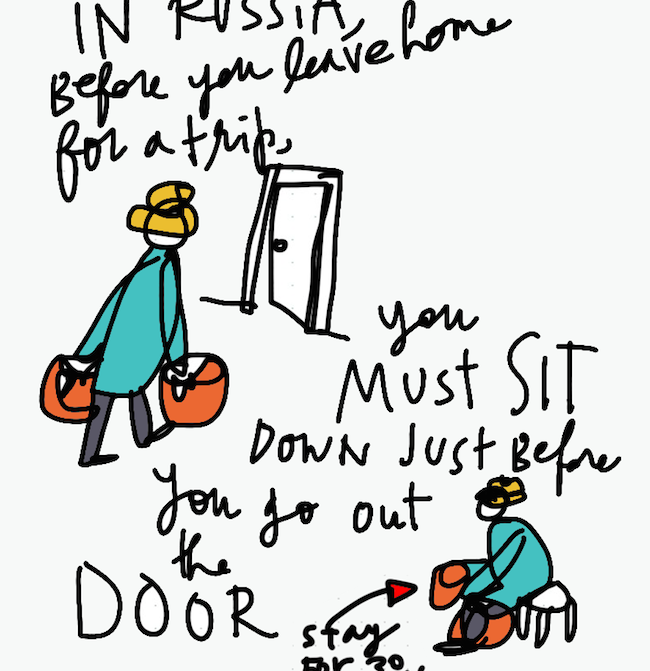 IN RUSSIA,
Before you leave home
for a trip,
you
MUST SIT
DOWN JUST Before
you go out
the
DOOR
stay
FOR 30